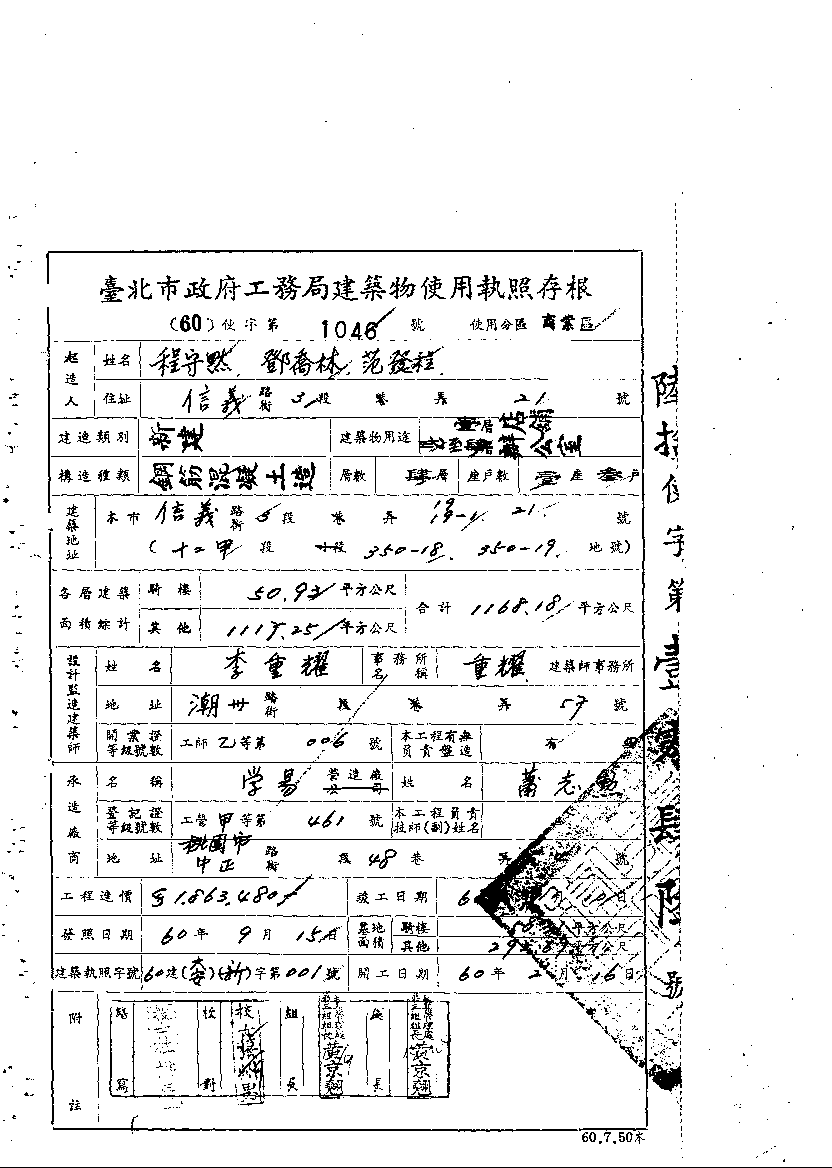 臺北市政府工務局建築物使用執照存根
(60)使字第 1046 號 使用分區 商業區
起造人 姓名 程守默 鄧喬林 范發程
住址 信義路街 3段 巷 弄 21 號
建造類別 新建 建築物用途 壹層店舖 辦公室
構造種類 鋼筋混凝土造 層數 肆層 座戶數 壹座 叁戶
建築地址 本市 信義路街 3段 巷 弄 19 19-1 21 號
(十二甲 段 段 350-18. 350-19. 地號)
各層建築面積綜計 騎樓 平方公尺 合計 1168.18 平方公尺
其他 平方公尺
設計監造建築師 姓名 李重耀 事務所名稱 重耀 建築師事務所
地址 潮州路街 段 巷 弄 57 號
開業證等級號數 工師乙等第 006 號 本工程有無員責盤造 有
承造廠商 名稱 学易 營造廠公司 姓名 蕭志
登記證等級號數 工營甲等第 461 號 本工程員責技師(副)姓名
地址 桃園市中正路街 段 48 巷 弄 號
工程造價 $1,863,480 竣工日期 60 月 10日
發照日期 60年 9月 15日 基地面積 騎樓 平方公尺
其他 平方公尺
建築執照字號 60建( )(新)字第001號 開工日期 60年 2月 16日
附註 繕寫 校對 組長 處長
黃京翹 黃京翹
60.7.50本
陸拾使字第壹零肆陸號